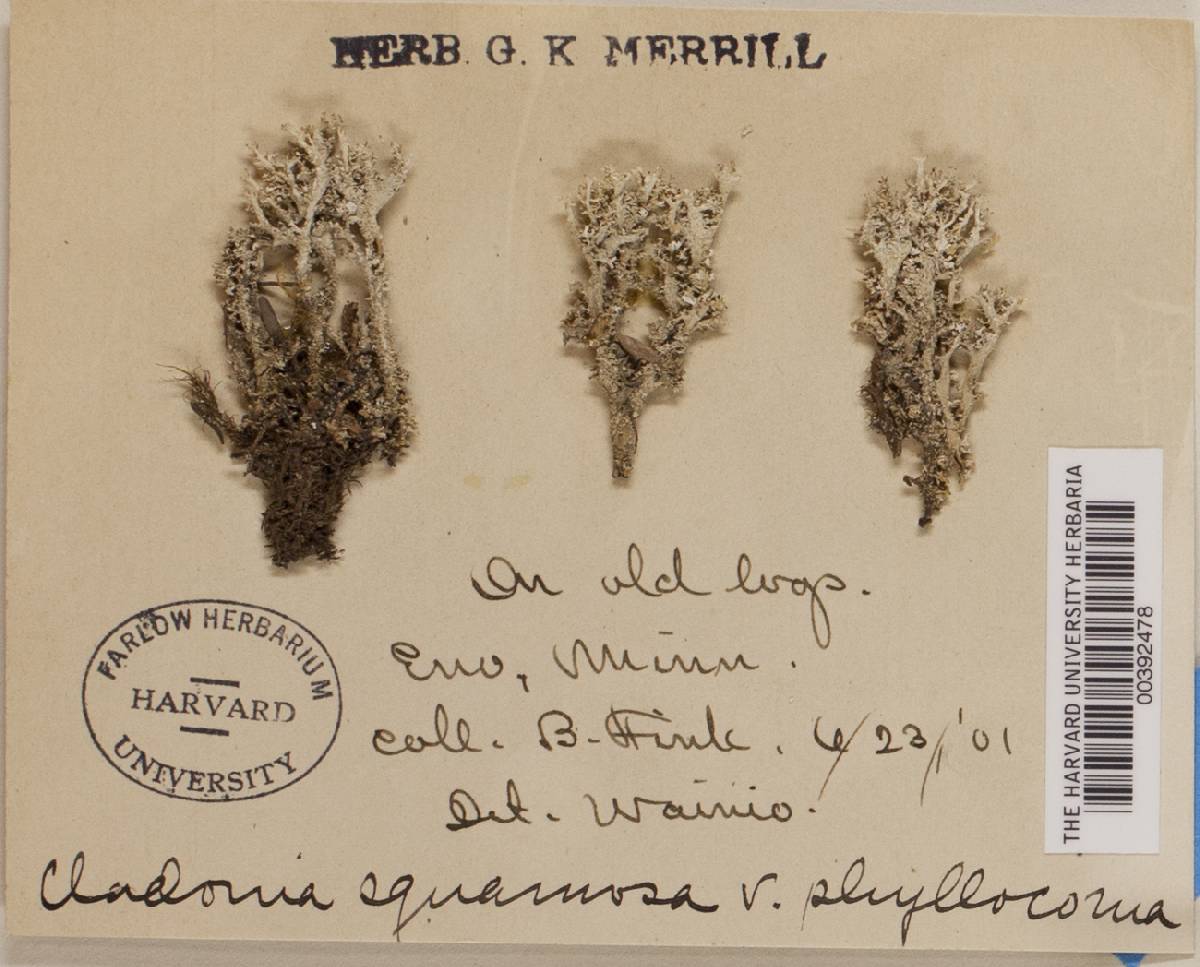 HERB. G. K MERRILL
On old logs.
Eno, Minn.
coll. B. Fink. 6/23/'01
Det. Wainio.
Cladonia squamosa v. phyllocoma
FARLOW HERBARIUM
HARVARD
UNIVERSITY
THE HARVARD UNIVERSITY HERBARIA
00392478